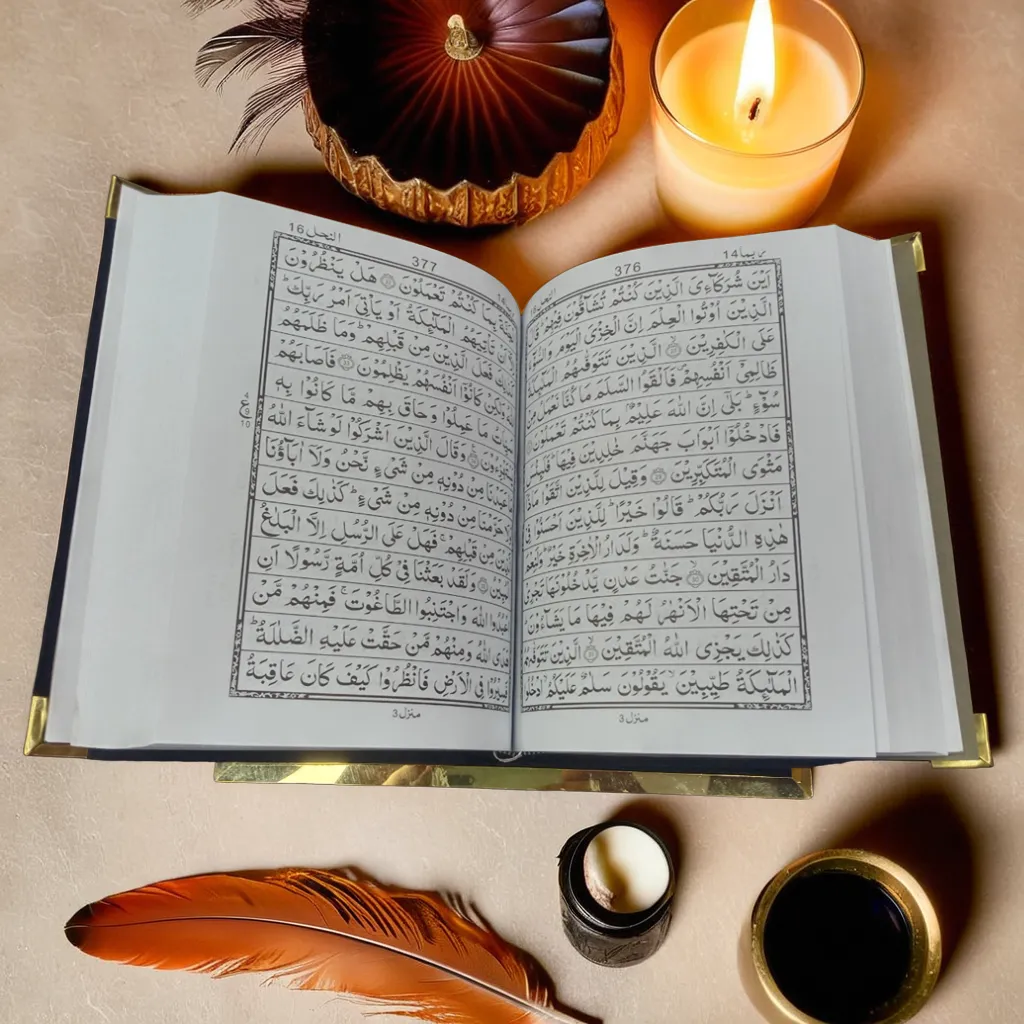 ربما 14
376
اَيْنَ شُرَكَآءِىَ الَّذِيْنَ كُنْتُمْ تُشَآقُّوْنَ فِيْهِمْ
الَّذِيْنَ اُوْتُوا الْعِلْمَ اِنَّ الْخِزْىَ الْيَوْمَ
عَلَى الْكٰفِرِيْنَ الَّذِيْنَ تَتَوَفّٰىهُمُ الْمَلٰٓئِكَةُ
ظَالِمِىْٓ اَنْفُسِهِمْ فَاَلْقَوُا السَّلَمَ مَا كُنَّا نَعْمَلُ مِنْ
سُوْٓءٍ ؕ بَلٰٓى اِنَّ اللّٰهَ عَلِيْمٌۢ بِمَا كُنْتُمْ تَعْمَلُوْنَ
فَادْخُلُوْٓا اَبْوَابَ جَهَنَّمَ خٰلِدِيْنَ فِيْهَا ؕ فَلَبِئْسَ
مَثْوَى الْمُتَكَبِّرِيْنَ وَقِيْلَ لِلَّذِيْنَ اتَّقَوْا مَاذَآ
اَنْزَلَ رَبُّكُمْ ؕ قَالُوْا خَيْرًا ؕ لِلَّذِيْنَ اَحْسَنُوْا فِىْ
هٰذِهِ الدُّنْيَا حَسَنَةٌ ؕ وَلَدَارُ الْاٰخِرَةِ خَيْرٌ ؕ وَلَنِعْمَ
دَارُ الْمُتَّقِيْنَ جَنّٰتُ عَدْنٍ يَّدْخُلُوْنَهَا تَجْرِىْ
مِنْ تَحْتِهَا الْاَنْهٰرُ لَهُمْ فِيْهَا مَا يَشَآءُوْنَ ؕ
كَذٰلِكَ يَجْزِى اللّٰهُ الْمُتَّقِيْنَ الَّذِيْنَ تَتَوَفّٰىهُمُ
الْمَلٰٓئِكَةُ طَيِّبِيْنَ ۙ يَقُوْلُوْنَ سَلٰمٌ عَلَيْكُمُ ادْخُلُوا
منزل 3
النحل 16
377
بِمَا كُنْتُمْ تَعْمَلُوْنَ هَلْ يَنْظُرُوْنَ
اَنْ تَاْتِيَهُمُ الْمَلٰٓئِكَةُ اَوْ يَاْتِىَ اَمْرُ رَبِّكَ ؕ
فَعَلَ الَّذِيْنَ مِنْ قَبْلِهِمْ ؕ وَمَا ظَلَمَهُمُ
وَلٰكِنْ كَانُوْٓا اَنْفُسَهُمْ يَظْلِمُوْنَ فَاَصَابَهُمْ
مَا عَمِلُوْا وَحَاقَ بِهِمْ مَّا كَانُوْا بِهٖ
وَقَالَ الَّذِيْنَ اَشْرَكُوْا لَوْ شَآءَ اللّٰهُ
عَبَدْنَا مِنْ دُوْنِهٖ مِنْ شَىْءٍ نَّحْنُ وَلَآ اٰبَآؤُنَا
حَرَّمْنَا مِنْ دُوْنِهٖ مِنْ شَىْءٍ ؕ كَذٰلِكَ فَعَلَ
مِنْ قَبْلِهِمْ ۚ فَهَلْ عَلَى الرُّسُلِ اِلَّا الْبَلٰغُ
وَلَقَدْ بَعَثْنَا فِىْ كُلِّ اُمَّةٍ رَّسُوْلًا اَنِ
اعْبُدُوا اللّٰهَ وَاجْتَنِبُوا الطَّاغُوْتَ ۚ فَمِنْهُمْ مَّنْ
هَدَى اللّٰهُ وَمِنْهُمْ مَّنْ حَقَّتْ عَلَيْهِ الضَّلٰلَةُ ؕ
فَسِيْرُوْا فِى الْاَرْضِ فَانْظُرُوْا كَيْفَ كَانَ عَاقِبَةُ
منزل 3